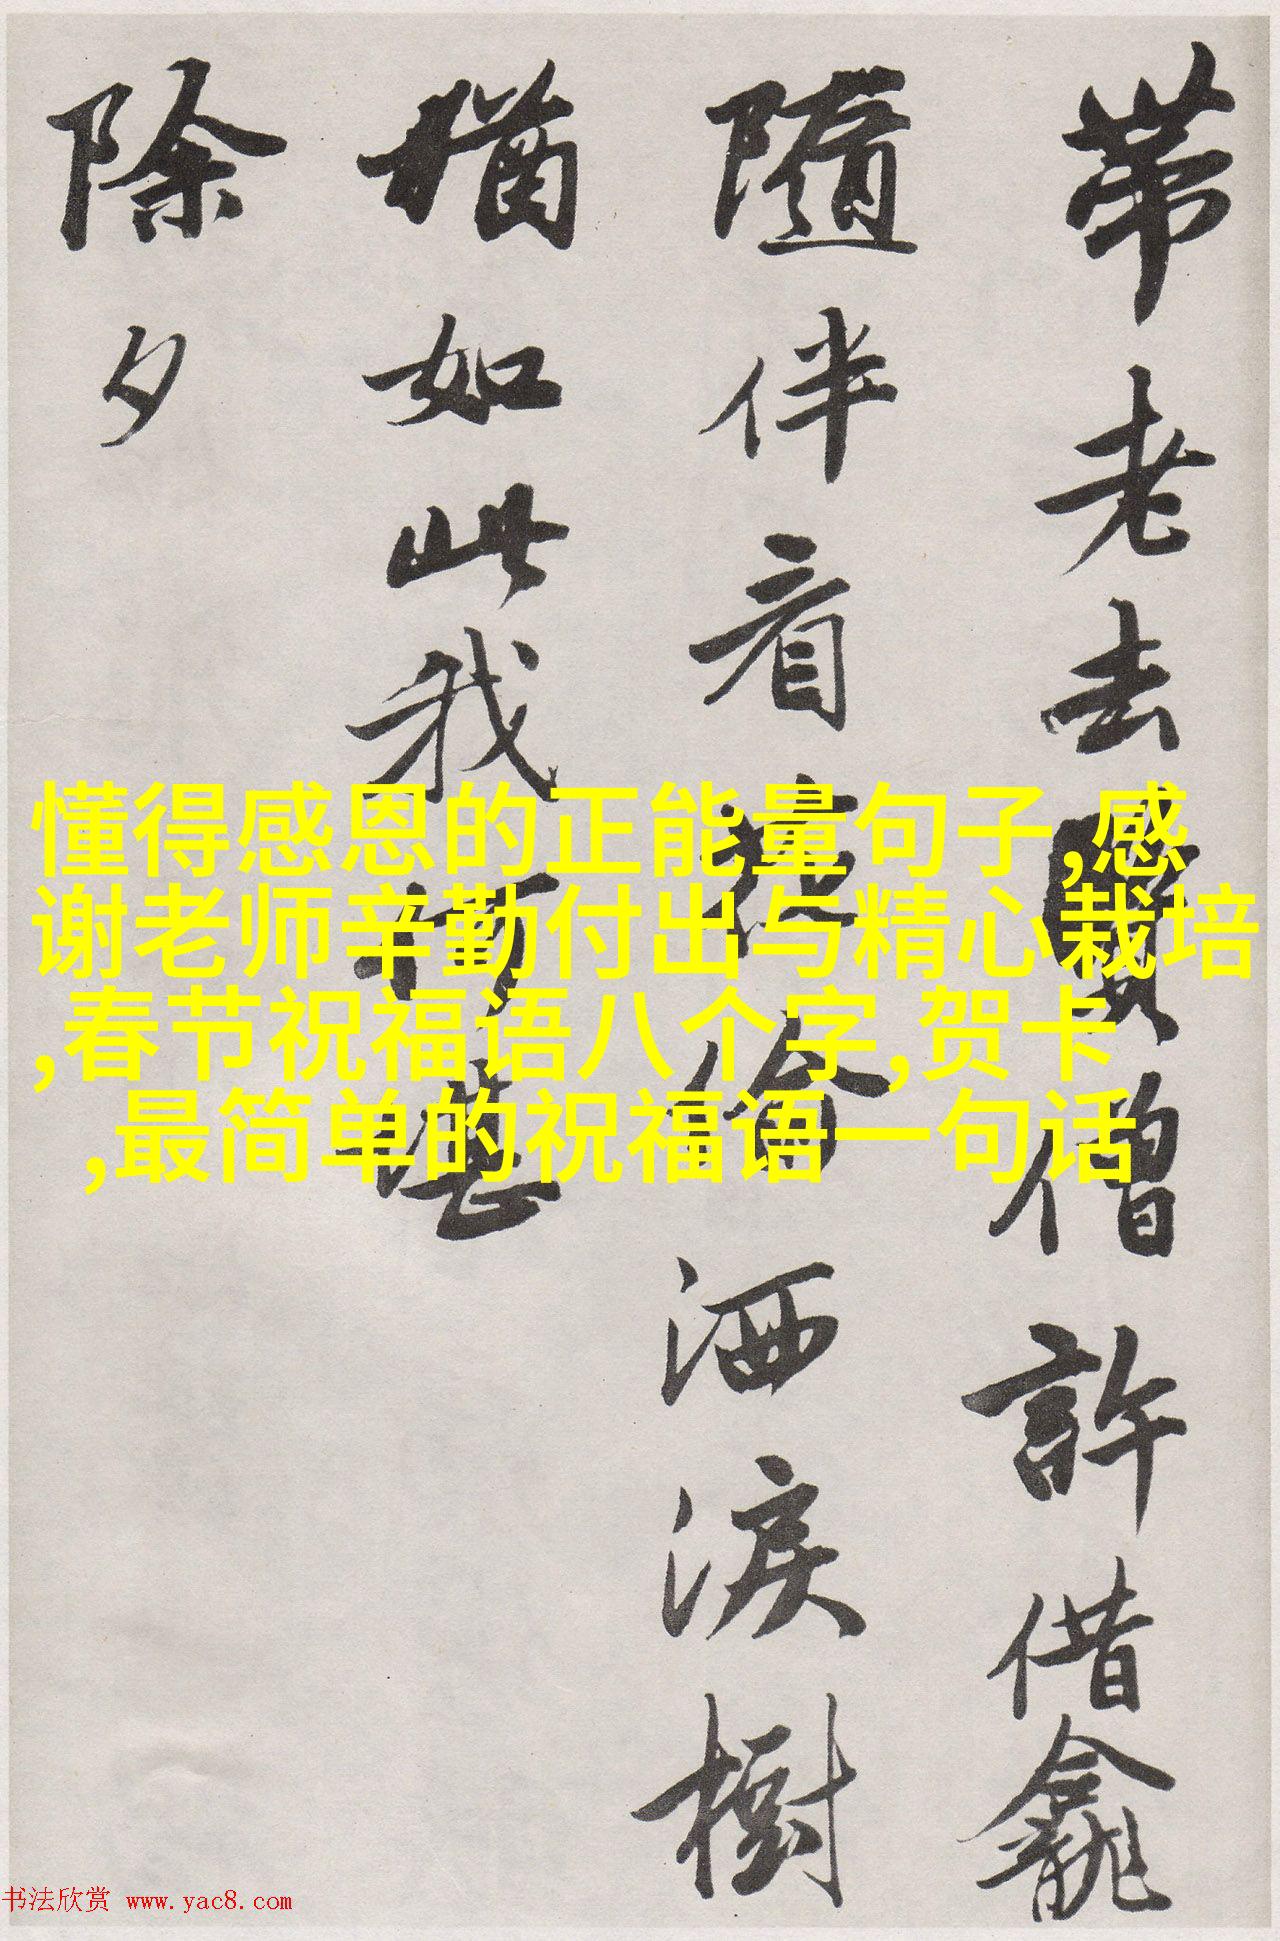 帶老去賢僧許借龕
隨伴看花偷洒淚樹
猶如此我何堪
除夕
懂得感恩的正能量句子,感
谢老师辛勤付出与精心栽培
,春节祝福语八个字,贺卡
,最简单的祝福语一句话
书法欣赏 www.yac8.com